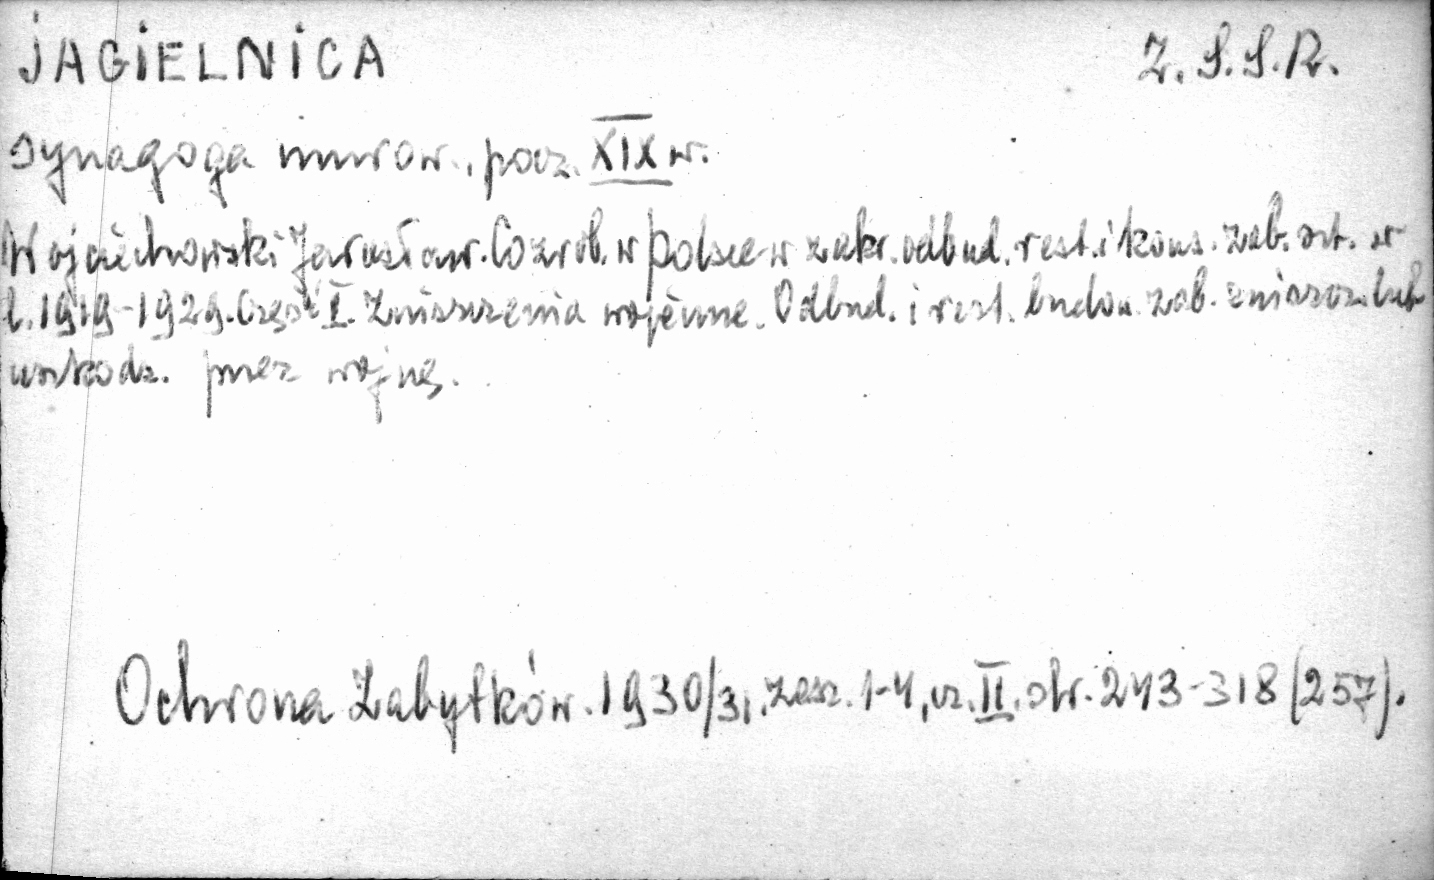 JAGIELNICA Z.S.S.R.
synagoga murow., pocz. XIX w.
Wojciechowski Jarosław. Co zrob. w Polsce w zakr. odbud. rest. i kons. zab. szt. w
l. 1919-1929. Część I. Zniszczenia wojenne. Odbud. i rest. budow. zab. zniszcz. lub
uszkodz. przez wojnę.
Ochrona Zabytków. 1930/31, zesz. 1-4, cz. II, str. 243-318 (257).